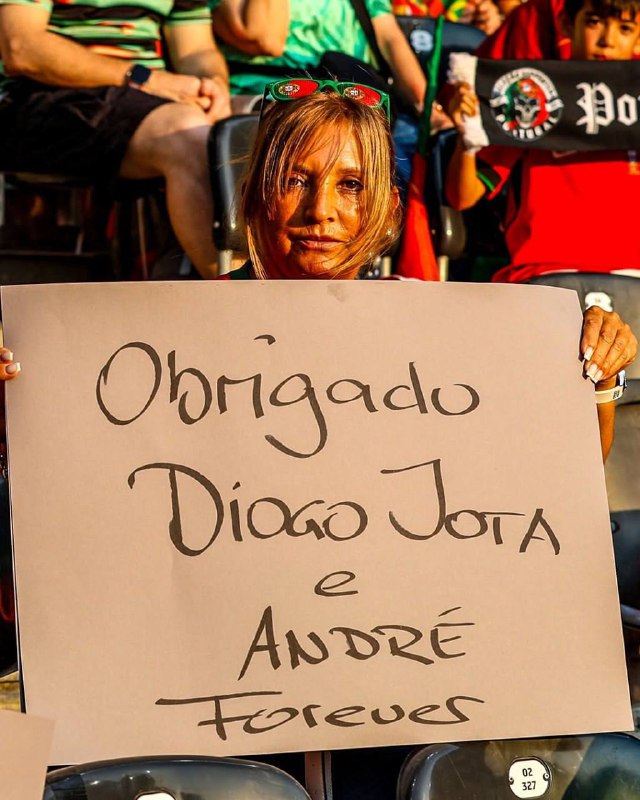 Po
PORTUGAL
Obrigado
Diogo Jota
e
ANDRÉ
Forever
02
327